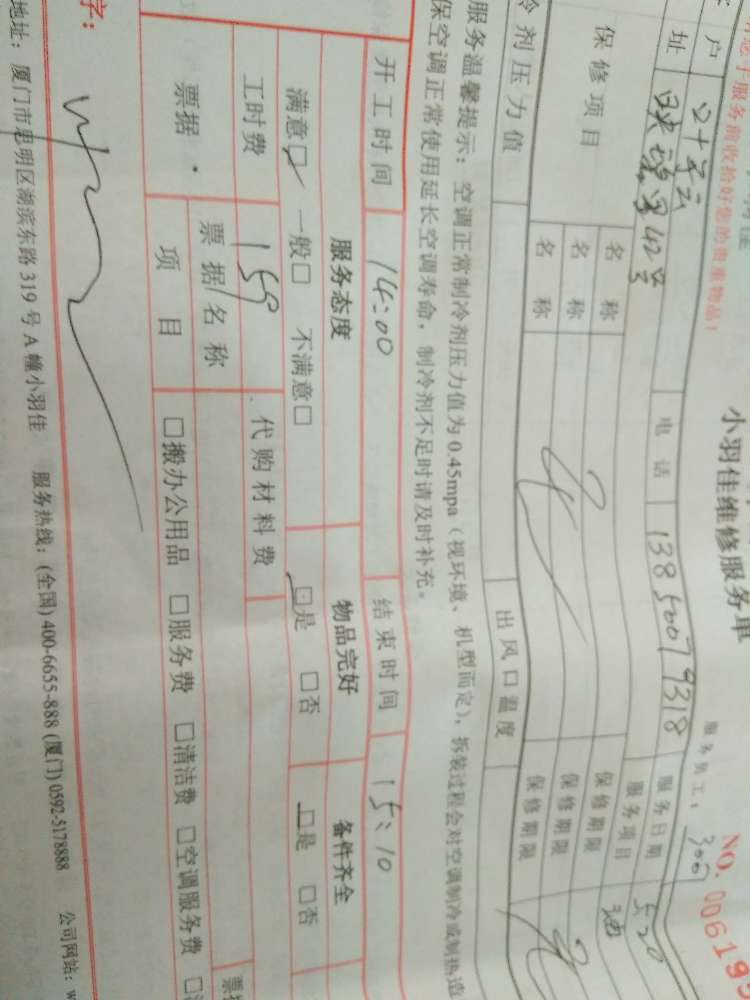 小羽佳维修服务单
NO. 006195
服务前收拾好您的贵重物品!
服务员工: 3001
户
电话 13850079318 服务日期 5.20
址 42号 服务项目
保修项目 名称 保修期限
名称 保修期限
名称 保修期限
冷剂压力值 出风口温度
服务温馨提示: 空调正常制冷剂压力值为0.45mpa (视环境、机型而定), 拆装过程会对空调制冷或制热造
保空调正常使用延长空调寿命, 制冷剂不足时请及时补充。
开工时间 14:00 结束时间 15:10
服务态度 物品完好 备件齐全
满意□ 一般□ 不满意□ □是 □否 □是 □否
工时费 159 代购材料费
票据名称 票据
票据 项目 □搬办公用品 □服务费 □清洁费 □空调服务费 □
字:
地址: 厦门市思明区湖滨东路319号A幢小羽佳 服务热线: (全国) 400-6655-888 (厦门) 0592-5178888 公司网站: w